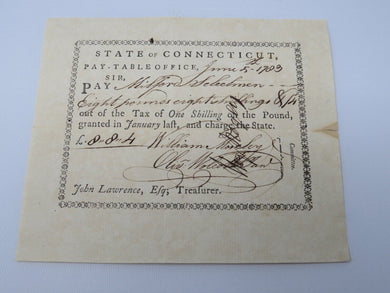 STATE OF CONNECTICUT,
PAY-TABLE OFFICE, June 5th 1783
SIR,
PAY Milford Selectmen
Eight pounds eight shillings & /4
out of the Tax of One Shilling on the Pound,
granted in January last, and charge the State.
£ 8-8-4 William Moseley
Olivr Wolcott
Committee.
John Lawrence, Esq; Treasurer.